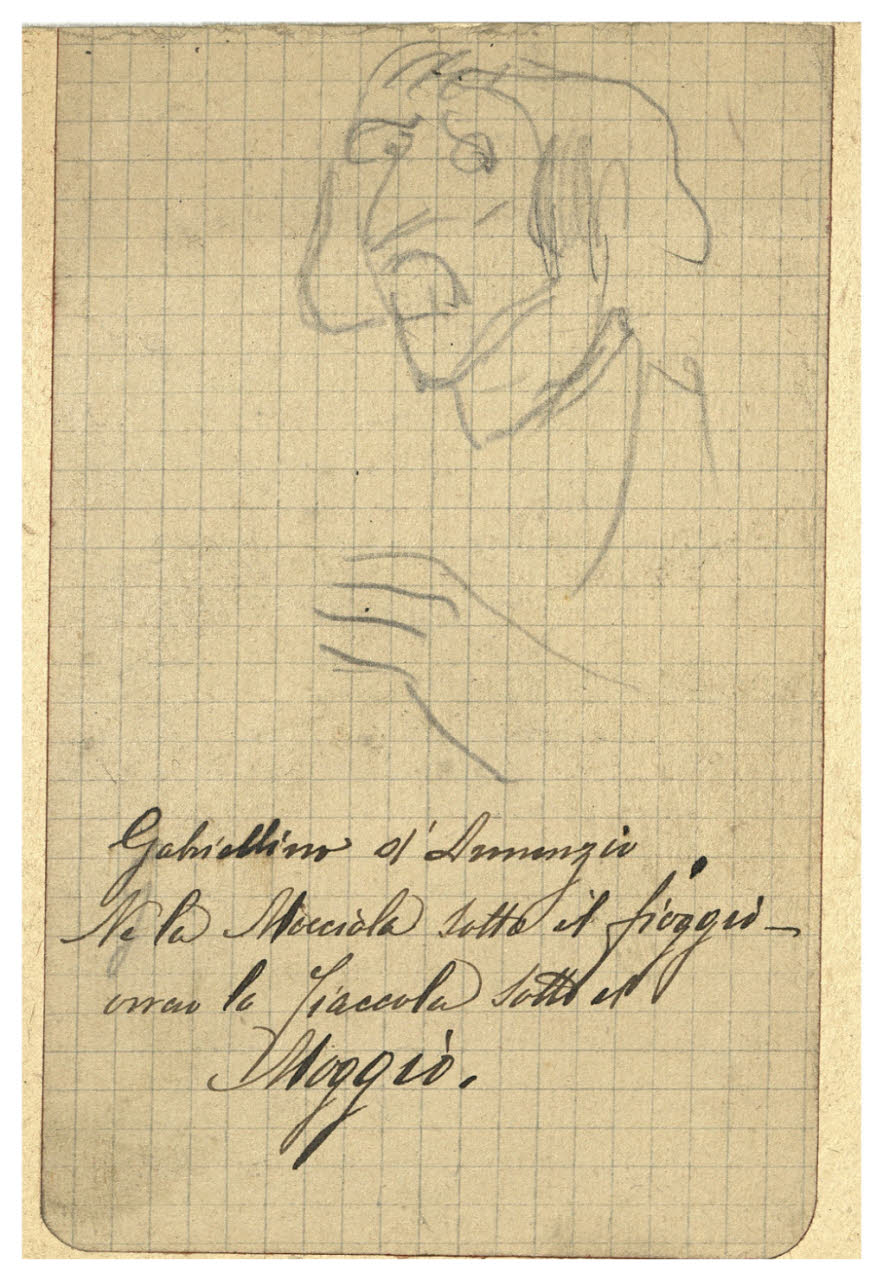 Gabriellino d'Annunzio
Ne la Mocciola sotto il fioggio —
ovvero la Fiaccola sotto il
Moggio.